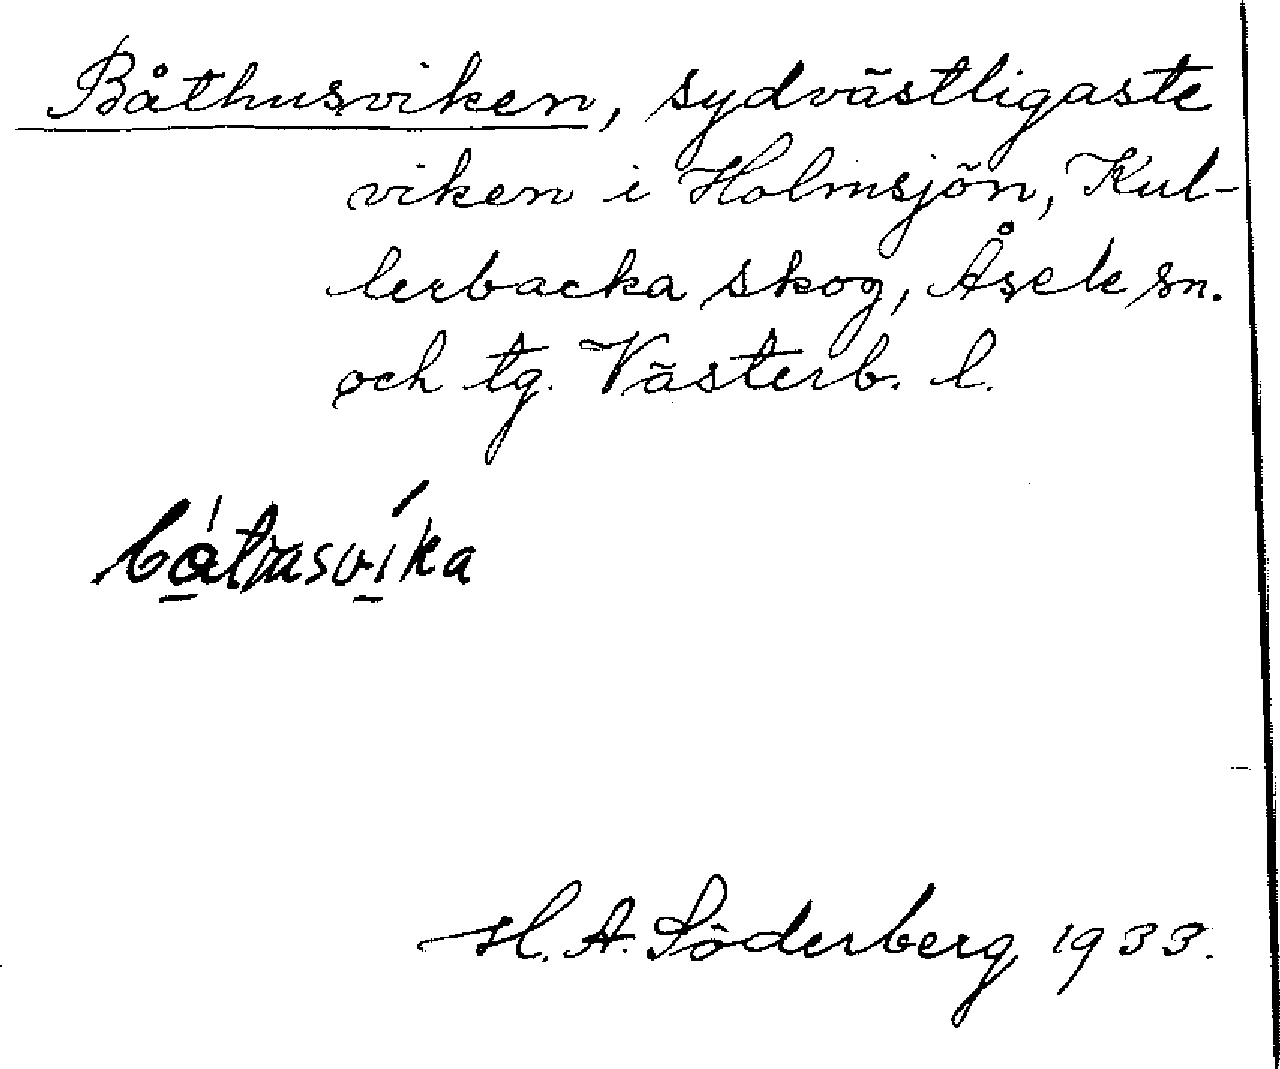 Båthusviken, sydvästligaste
viken i Holmsjön, Kul-
lerbacka skog, Åsele sn.
och tg. Västerb. l.
båtrasvika
H. A. Söderberg 1933.